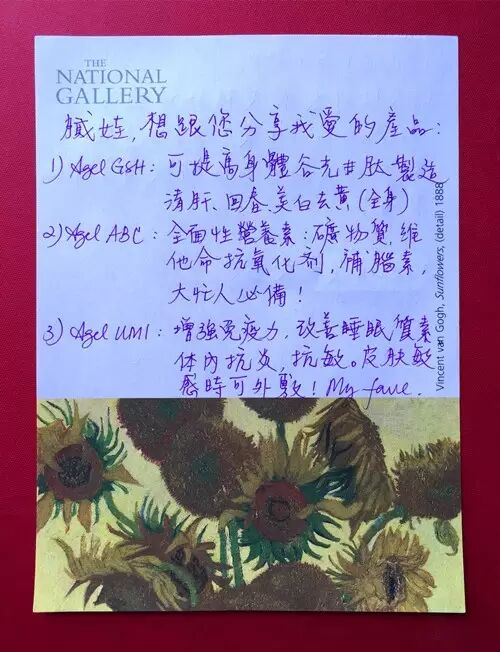 THE
NATIONAL
GALLERY
膩娃, 想跟您分享我愛的產品：
1) Agel GSH：可提高身體谷光甘肽製造
清肝、回春、美白去黄(全身)
2) Agel ABC：全面性營養素：礦物質、維
他命抗氧化剂，補腦素，
大忙人必備！
3) Agel UMI：增強免疫力，改善睡眠質素
体內抗炎，抗敏。皮肤敏
感時可外敷！My fave.
Vincent van Gogh, Sunflowers, (detail) 1888